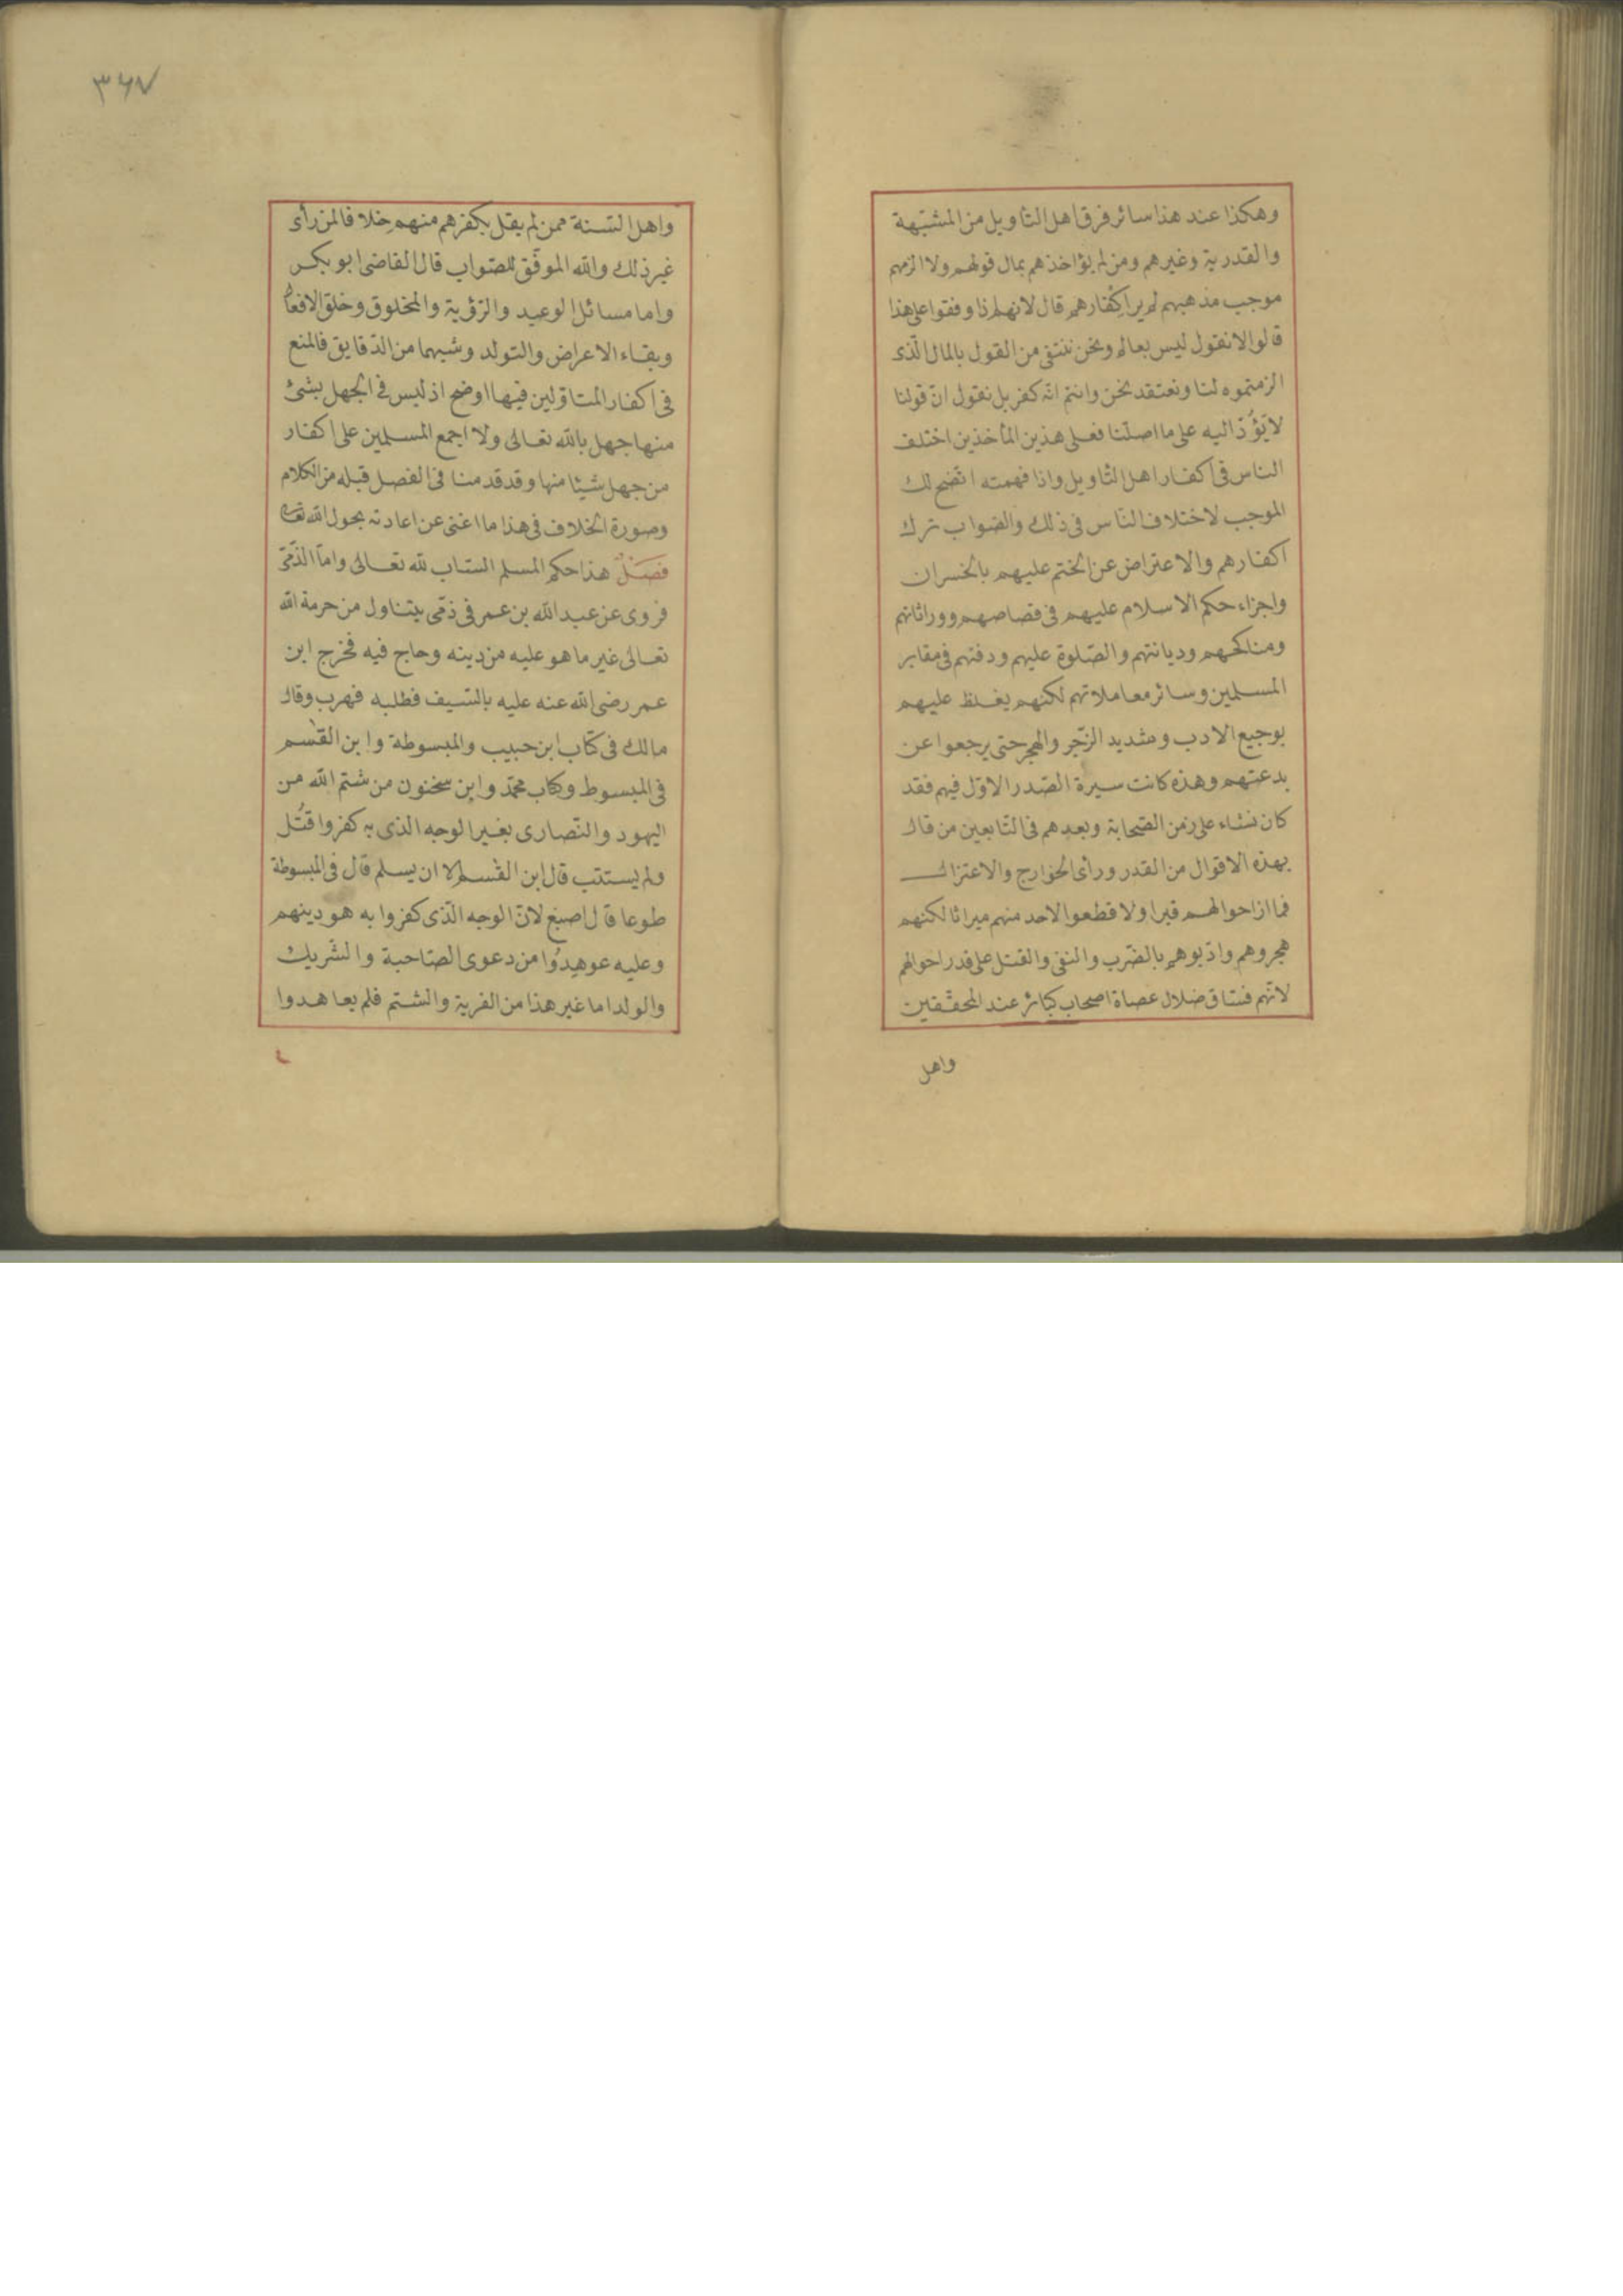 وهكذا عند هذا سائر فرق اهل التأويل من المشبّهة
والقدرية وغيرهم ومن لم يؤاخذهم بمال قولهم ولا الزمهم
موجب مذهبهم لم ير اكفارهم قال لانهم اذا وفقوا على هذا
قالوا لا نقول ليس بعالم ونحن ننتفى من القول بالمال الّذى
الزمتموه لنا ونعتقد نحن وانتم انّه كفر بل نقول انّ قولنا
لا يؤل اليه على ما اصلّنا فعلى هذين المأخذين اختلف
الناس فى اكفار اهل التّاويل واذا فهمته اتّضح لك
الموجب لاختلاف النّاس فى ذلك والصّواب ترك
اكفارهم والاعتراض عن الختم عليهم بالخسران
واجراء حكم الاسلام عليهم فى قصاصهم ووراثاتهم
ومناكحهم ودياتهم والصّلوة عليهم ودفنهم فى مقابر
المسلمين وسائر معاملاتهم لكنهم يغلظ عليهم
بوجيع الادب وشديد الزّجر والهجر حتى يرجعوا عن
بدعتهم وهذه كانت سيرة الصّدر الاوّل فيهم فقد
كان نشاء على زمن الصّحابة وبعدهم فى التّابعين من قال
بهذه الاقوال من القدر ورأى الخوارج والاعتزال
فما ازاحوا لهم قبرا ولا قطعوا لاحد منهم ميراثا لكنهم
هجروهم وادّبوهم بالضّرب والنفى والقتل على قدر احوالهم
لانّهم فسّاق ضلال عصاة اصحاب كبائر عند المحقّقين
واهل
٣٦٧
واهل السّنة ممن لم يقل بكفرهم منهم خلافا لمن رأى
غير ذلك والله الموفّق للصّواب قال القاضى ابو بكر
واما مسائل الوعيد والرّؤية والمخلوق وخلق الافعال
وبقاء الاعراض والتولد وشبهها من الدّقايق فالمنع
فى اكفار المتاوّلين فيها اوضح اذ ليس فى الجهل بشئ
منها جهل بالله تعالى ولا اجمع المسلمين على اكفار
من جهل شيئا منها وقد قدمنا فى الفصل قبله من الكلام
وصورة الخلاف فى هذا ما اغنى عن اعادته بحول الله تعالى
فصل هذا حكم المسلم السّاب لله تعالى وامّا الذّمّى
فروى عن عبد الله بن عمر فى ذمّى يتناول من حرمة الله
تعالى غير ما هو عليه من دينه وحاج فيه فخرج ابن
عمر رضى الله عنه عليه بالسّيف فطلبه فهرب وقال
مالك فى كتاب ابن حبيب والمبسوطة وابن القسم
فى المبسوط وكتاب محمّد وابن سحنون من شتم الله من
اليهود والنّصارى بغير الوجه الذى به كفروا قتل
ولم يستتب قال ابن القسم الا ان يسلم قال فى المبسوطة
طوعا قال اصبغ لانّ الوجه الّذى كفروا به هو دينهم
وعليه عوهدوا من دعوى الصّاحبة والشّريك
والولد اما غير هذا من الفرية والشتم فلم يعاهدوا